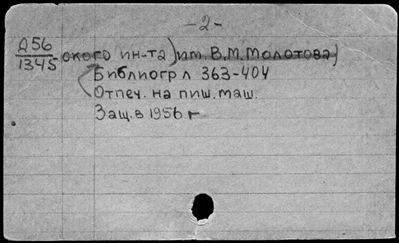 -2-
Д56
1345
ского ин-та) им. В.М. Молотова)
Библиогр л 363-404
Отпеч. на пиш. маш.
Защ. в 1956 г